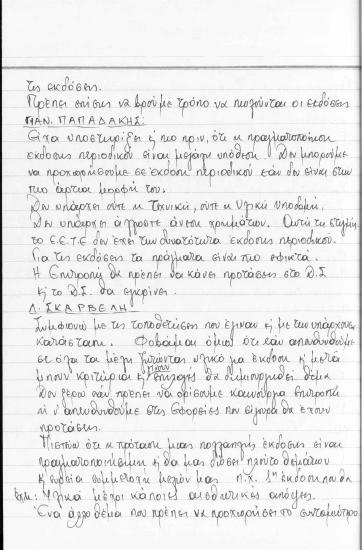 τις εκδόσεις.
Πρέπει επίσης να βρούμε τρόπο να πωλούνται οι εκδόσεις
ΠΑΝ. ΠΑΠΑΔΑΚΗΣ:
Είχα υποστηρίξει κ πιο πριν, ότι η πραγματοποίηση
έκδοσης περιοδικού είναι μεγάλη υπόθεση. Δεν μπορούμε
να προχωρήσουμε σε έκδοση περιοδικού εάν δεν είναι στην
πιο άρτια μορφή του.
Δεν υπάρχει ούτε η Τεχνική, ούτε η Υλική υποδομή.
Δεν υπάρχει άλλωστε άνεση χρημάτων. Αυτή τη στιγμή
το Ε.Ε.Τ.Ε δεν έχει την δυνατότητα έκδοσης περιοδικού.
Για τις εκδόσεις τα πράγματα είναι πιο εφικτά.
Η Επιτροπή θα πρέπει να κάνει προτάσεις στο Δ.Σ
κ το Δ.Σ. θα εγκρίνει.
Λ. ΣΚΑΡΒΕΛΗ:
Συμφωνώ με τις τοποθετήσεις που έγιναν κ με την υπάρχουσα
κατάσταση. Φοβάμαι όμως ότι εάν απευθυνθούμε
σε όλα τα μέλη ζητώντας υλικό για έκδοση κ μετά
μπουν κριτήρια κ γίνουν επιλογές θα δημιουργηθεί θέμα
Δεν ξέρω εάν πρέπει να ορίσουμε καινούργια επιτροπή
ή ν' απευθυνθούμε στις Εφορείες που σίγουρα θα έχουν
προτάσεις.
Πιστεύω ότι η πρόταση μιας πολλαπλής έκδοσης είναι
πραγματοποιήσιμη κ θα μας δώσει πλούτο θεμάτων
κ ευρεία συμμετοχή μελών μας π.χ. 1η έκδοση που θα
έχει: Υλικά μέχρι κάποιες αισθητικές απόψεις.
Ένα άλλο θέμα που πρέπει να προχωρήσει το συντομότερο